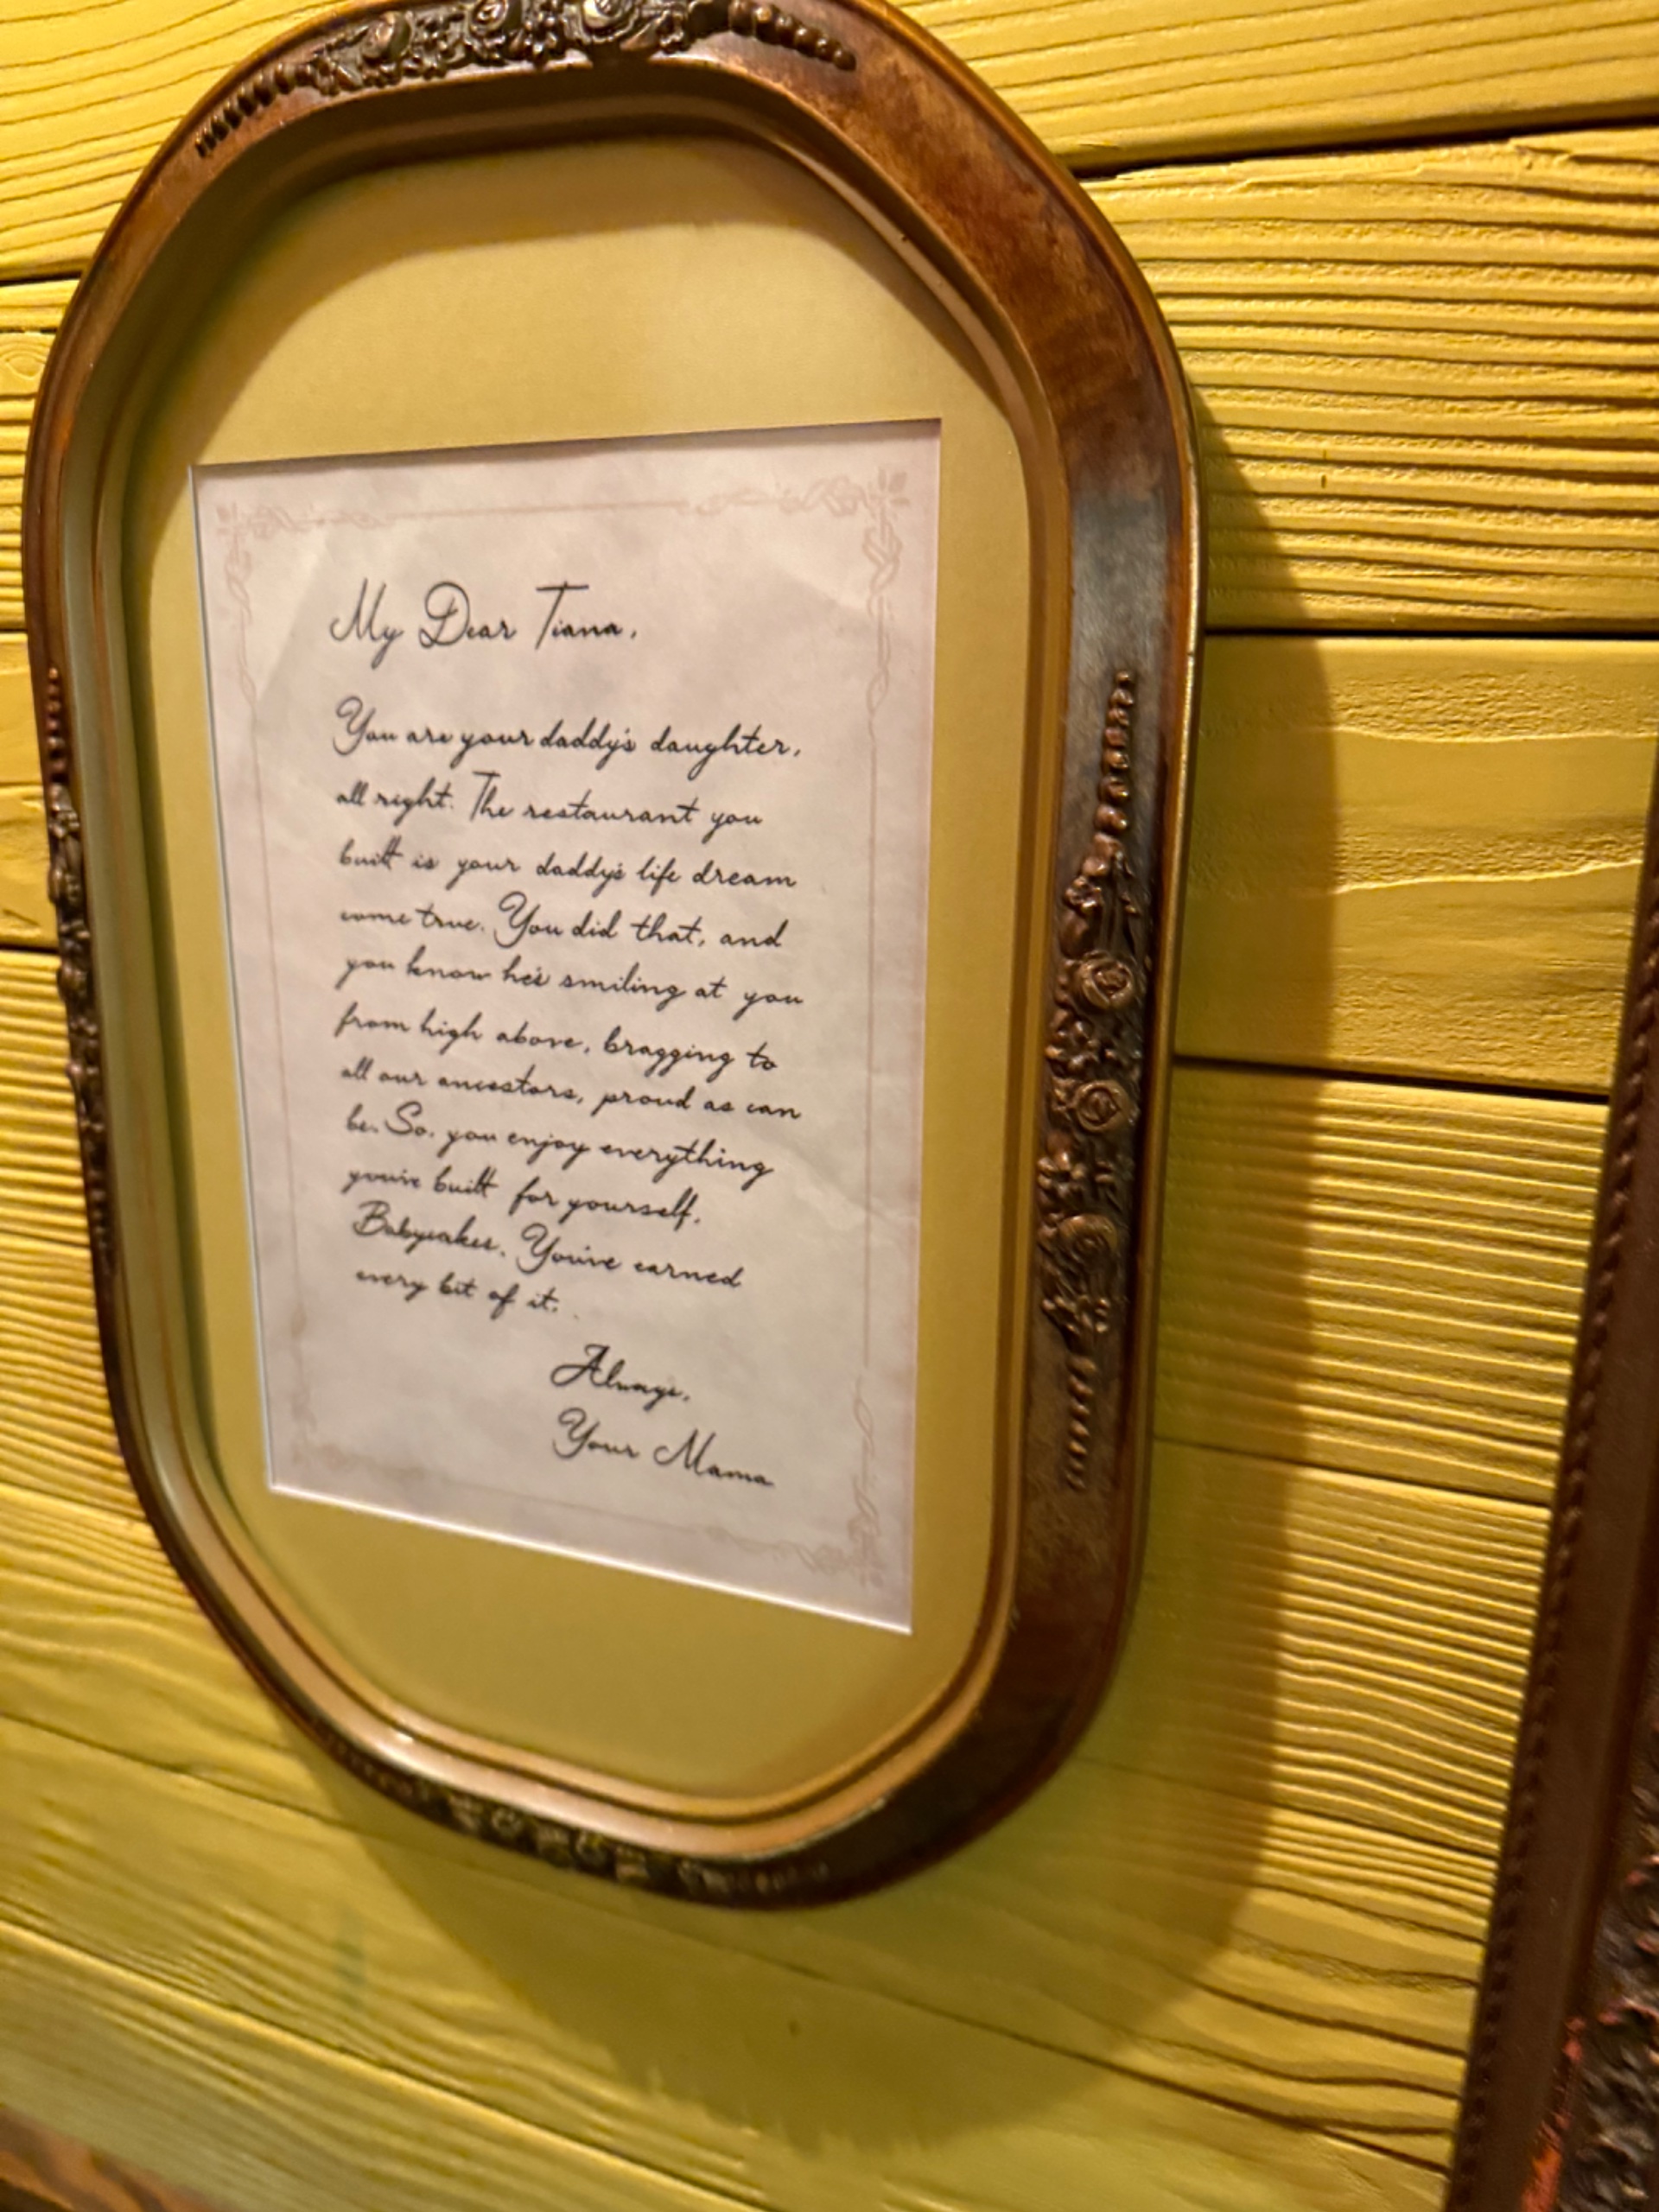 My Dear Tiana,
You are your daddy's daughter,
all right. The restaurant you
built is your daddy's life dream
come true. You did that, and
you know he's smiling at you
from high above, bragging to
all our ancestors, proud as can
be. So, you enjoy everything
you've built for yourself,
Babycakes. You've earned
every bit of it.
Always,
Your Mama